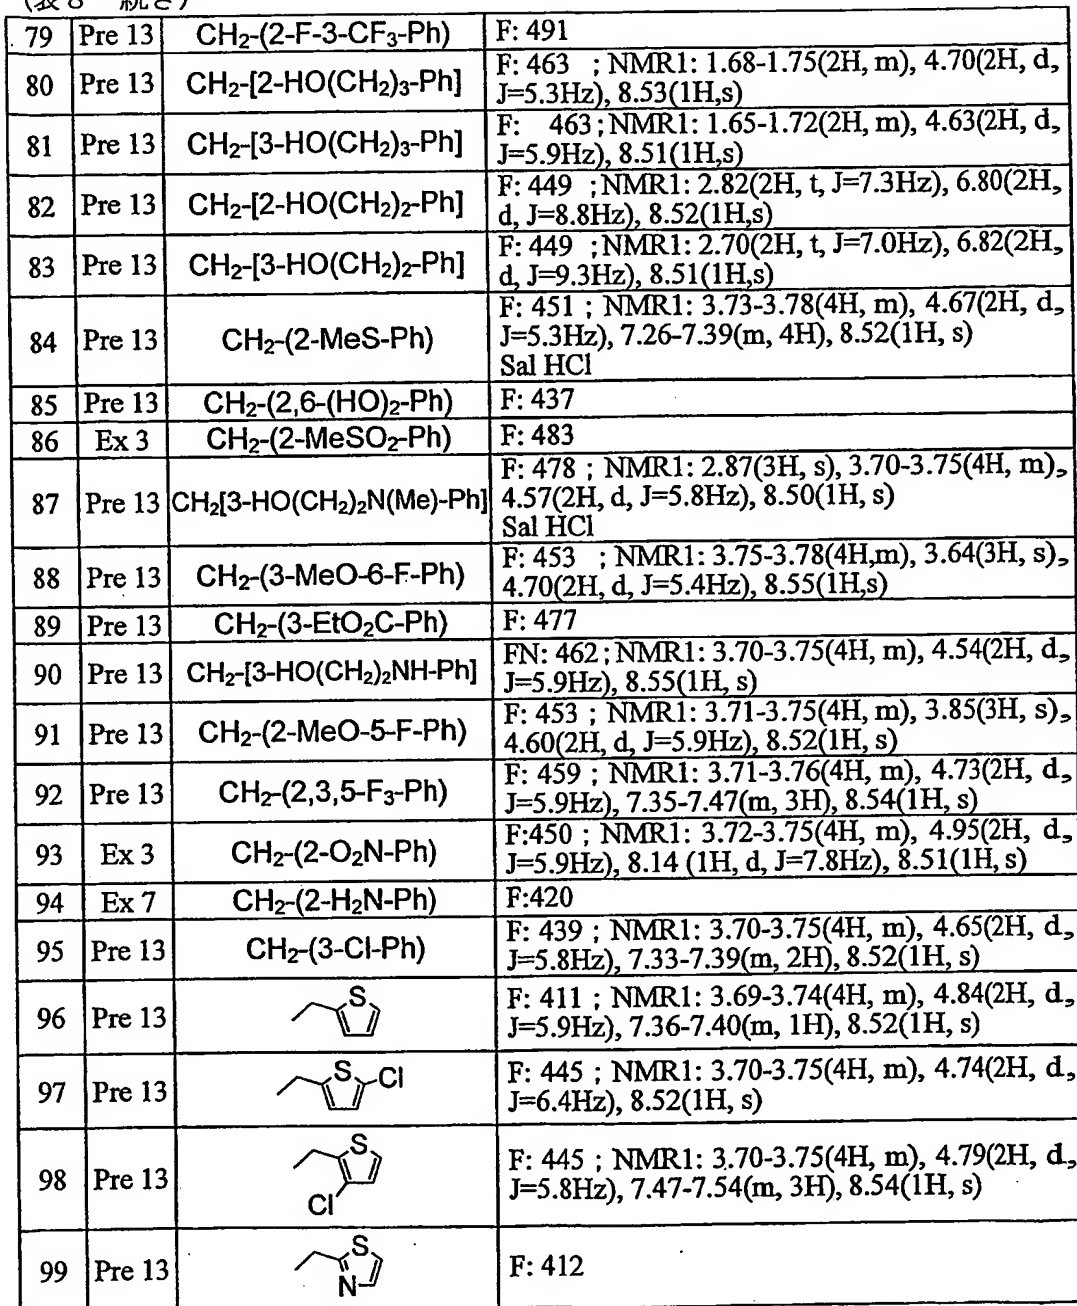 (表8 続き)
79 Pre 13 CH₂-(2-F-3-CF₃-Ph) F: 491
80 Pre 13 CH₂-[2-HO(CH₂)₃-Ph] F: 463 ; NMR1: 1.68-1.75(2H, m), 4.70(2H, d,
J=5.3Hz), 8.53(1H,s)
81 Pre 13 CH₂-[3-HO(CH₂)₃-Ph] F: 463 ; NMR1: 1.65-1.72(2H, m), 4.63(2H, d,
J=5.9Hz), 8.51(1H,s)
82 Pre 13 CH₂-[2-HO(CH₂)₂-Ph] F: 449 ; NMR1: 2.82(2H, t, J=7.3Hz), 6.80(2H,
d, J=8.8Hz), 8.52(1H,s)
83 Pre 13 CH₂-[3-HO(CH₂)₂-Ph] F: 449 ; NMR1: 2.70(2H, t, J=7.0Hz), 6.82(2H,
d, J=9.3Hz), 8.51(1H,s)
84 Pre 13 CH₂-(2-MeS-Ph) F: 451 ; NMR1: 3.73-3.78(4H, m), 4.67(2H, d,
J=5.3Hz), 7.26-7.39(m, 4H), 8.52(1H, s)
Sal HCl
85 Pre 13 CH₂-(2,6-(HO)₂-Ph) F: 437
86 Ex 3 CH₂-(2-MeSO₂-Ph) F: 483
87 Pre 13 CH₂[3-HO(CH₂)₂N(Me)-Ph] F: 478 ; NMR1: 2.87(3H, s), 3.70-3.75(4H, m),
4.57(2H, d, J=5.8Hz), 8.50(1H, s)
Sal HCl
88 Pre 13 CH₂-(3-MeO-6-F-Ph) F: 453 ; NMR1: 3.75-3.78(4H,m), 3.64(3H, s),
4.70(2H, d, J=5.4Hz), 8.55(1H,s)
89 Pre 13 CH₂-(3-EtO₂C-Ph) F: 477
90 Pre 13 CH₂-[3-HO(CH₂)₂NH-Ph] FN: 462 ; NMR1: 3.70-3.75(4H, m), 4.54(2H, d,
J=5.9Hz), 8.55(1H, s)
91 Pre 13 CH₂-(2-MeO-5-F-Ph) F: 453 ; NMR1: 3.71-3.75(4H, m), 3.85(3H, s),
4.60(2H, d, J=5.9Hz), 8.52(1H, s)
92 Pre 13 CH₂-(2,3,5-F₃-Ph) F: 459 ; NMR1: 3.71-3.76(4H, m), 4.73(2H, d,
J=5.9Hz), 7.35-7.47(m, 3H), 8.54(1H, s)
93 Ex 3 CH₂-(2-O₂N-Ph) F:450 ; NMR1: 3.72-3.75(4H, m), 4.95(2H, d,
J=5.9Hz), 8.14 (1H, d, J=7.8Hz), 8.51(1H, s)
94 Ex 7 CH₂-(2-H₂N-Ph) F:420
95 Pre 13 CH₂-(3-Cl-Ph) F: 439 ; NMR1: 3.70-3.75(4H, m), 4.65(2H, d,
J=5.8Hz), 7.33-7.39(m, 2H), 8.52(1H, s)
96 Pre 13 S F: 411 ; NMR1: 3.69-3.74(4H, m), 4.84(2H, d,
J=5.9Hz), 7.36-7.40(m, 1H), 8.52(1H, s)
97 Pre 13 S Cl F: 445 ; NMR1: 3.70-3.75(4H, m), 4.74(2H, d,
J=6.4Hz), 8.52(1H, s)
98 Pre 13 S Cl F: 445 ; NMR1: 3.70-3.75(4H, m), 4.79(2H, d,
J=5.8Hz), 7.47-7.54(m, 3H), 8.54(1H, s)
99 Pre 13 S N F: 412